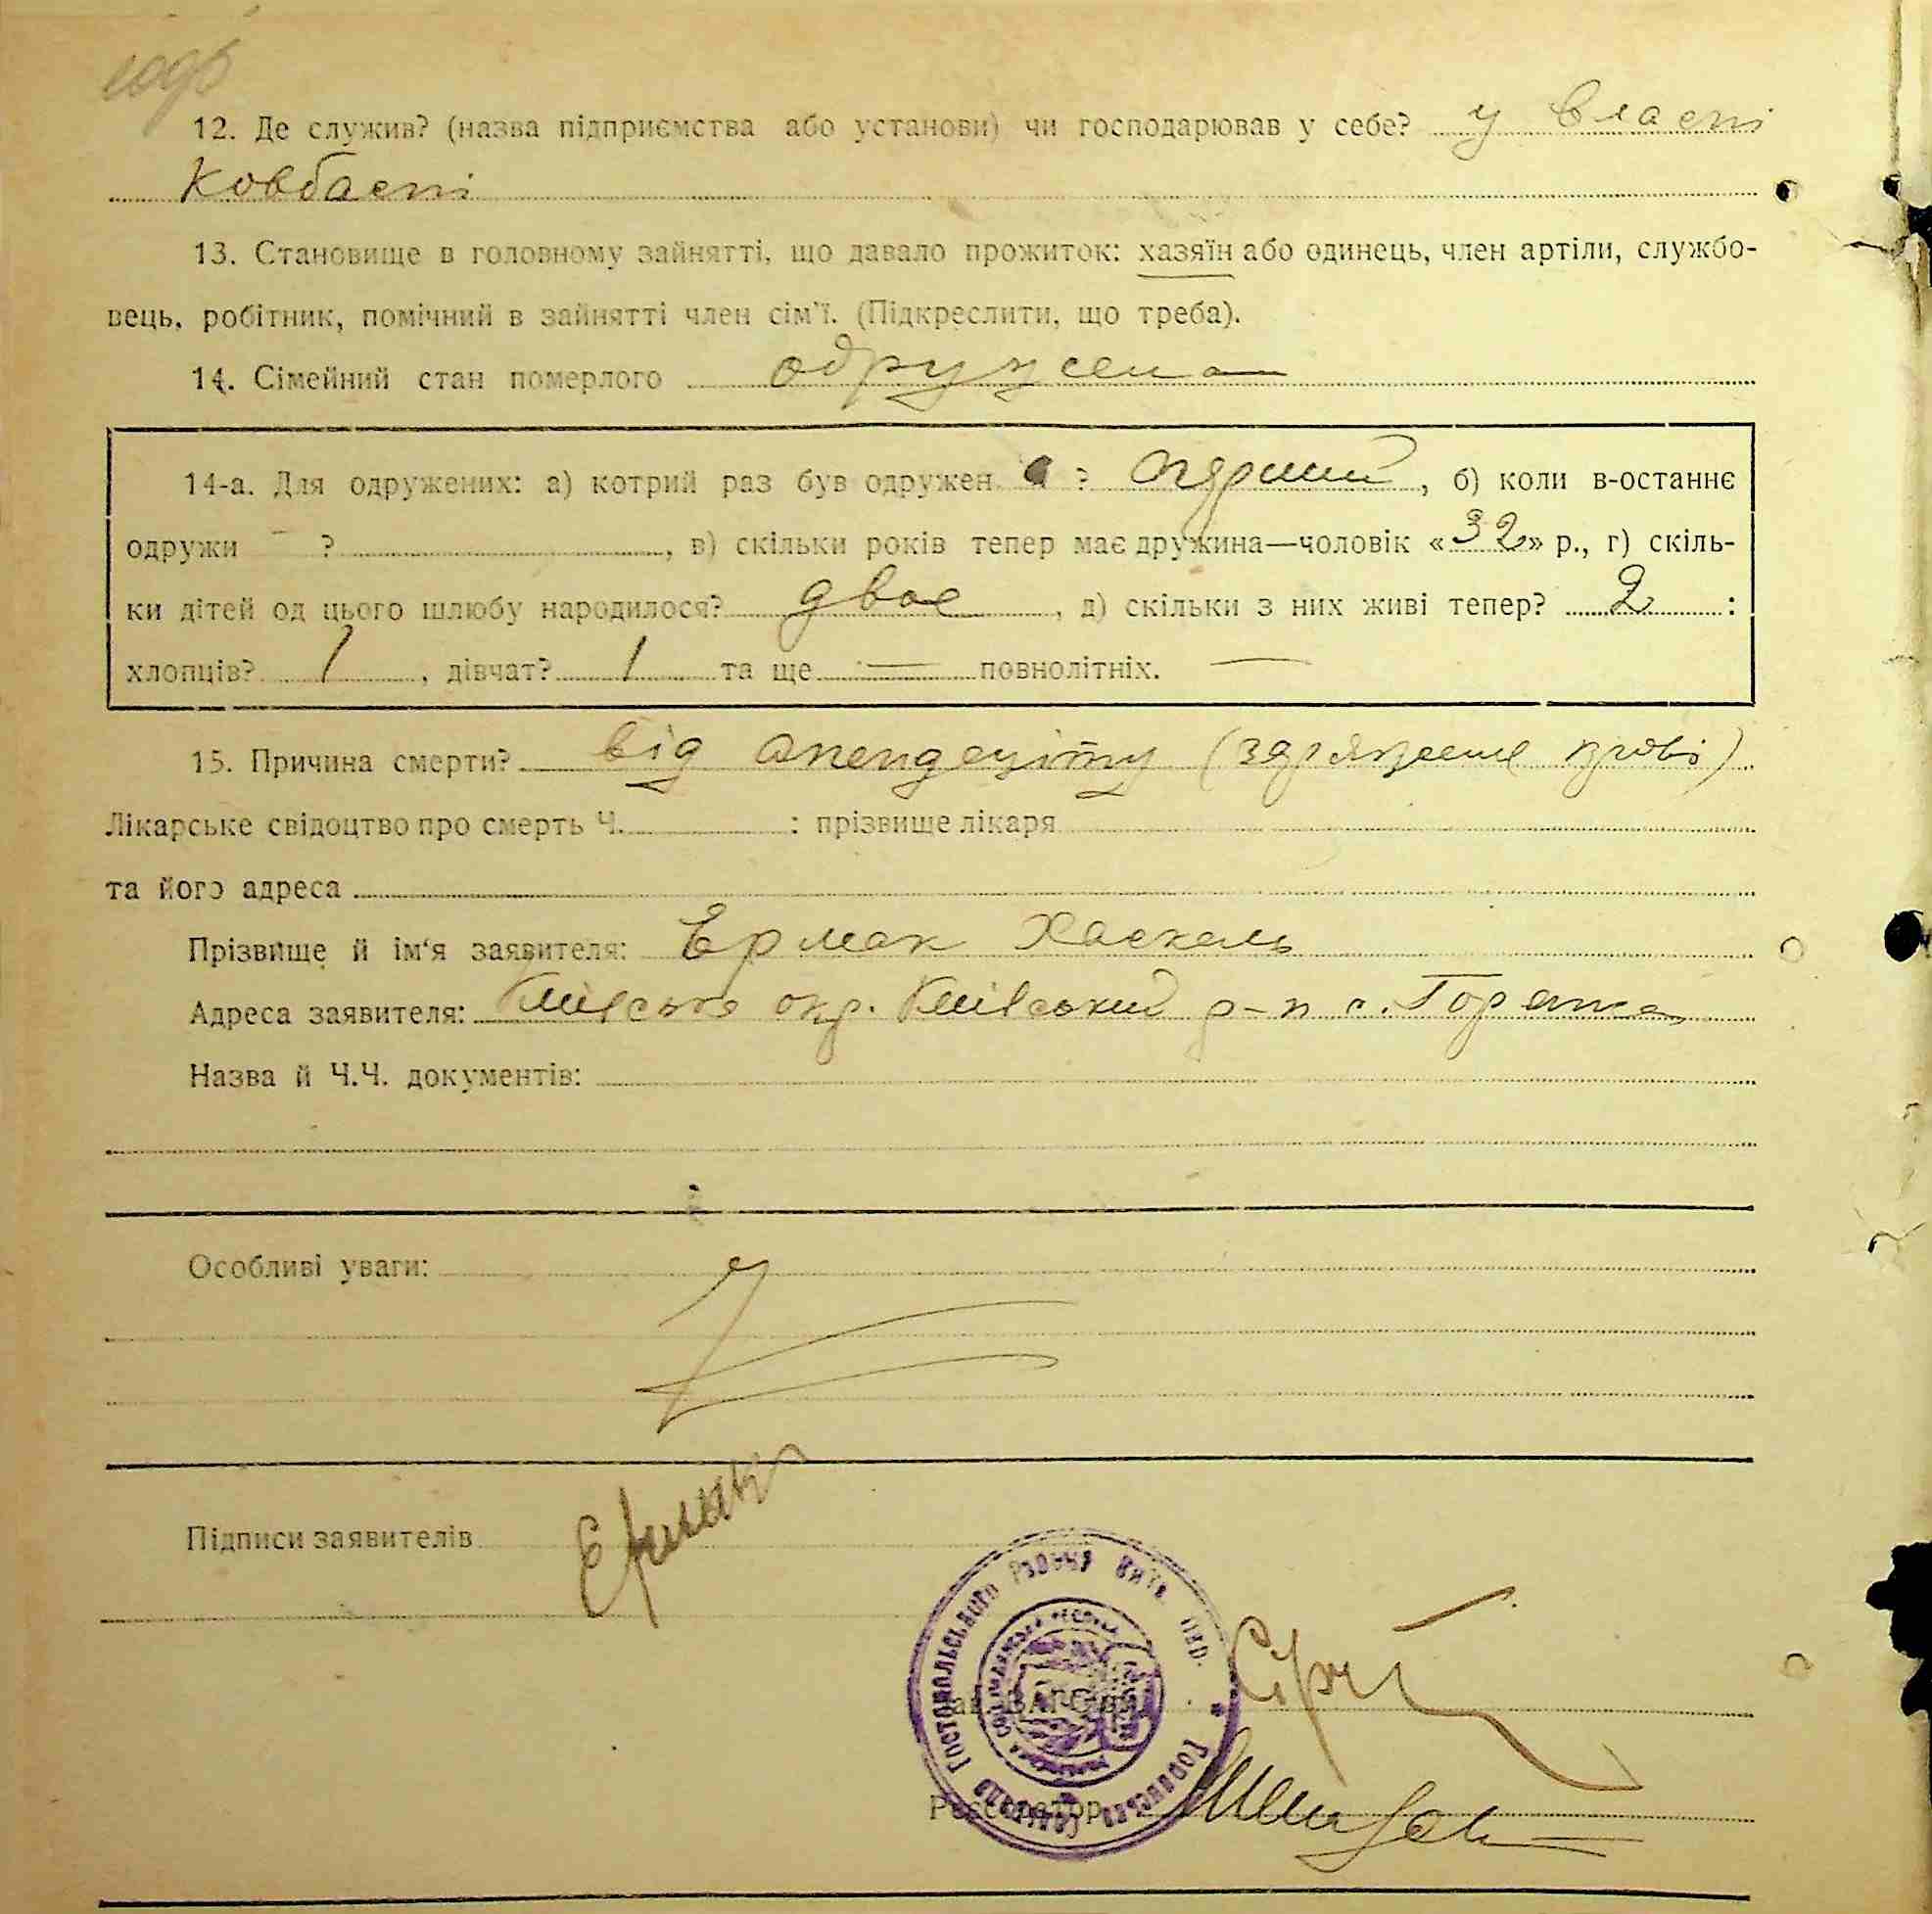 12. Де служив? (назва підприємства або установи) чи господарював у себе? у власні
ковбасні
13. Становище в головному зайнятті, що давало прожиток: хазяїн або одинець, член артіли, службо-
вець, робітник, помічний в зайнятті член сім'ї. (Підкреслити, що треба).
14. Сімейний стан померлого одружена
14-а. Для одружених: а) котрий раз був одружен а ? перший, б) коли в-останнє
одружи — ? , в) скільки років тепер має дружина—чоловік «32» р., г) скіль-
ки дітей од цього шлюбу народилося? двое, д) скільки з них живі тепер? 2 :
хлопців? 1, дівчат? 1 та ще — повнолітніх. —
15. Причина смерти? від апендециту (зараження крові)
Лікарське свідоцтво про смерть Ч. : прізвище лікаря
та його адреса
Прізвище й ім‘я заявителя: Ермак Хаскель
Адреса заявителя: Київська окр. Київський р-н с. Горенка
Назва й Ч.Ч. документів:
Особливі уваги:
Підписи заявителів Ермак
Гостомольського Району Київ.
Реєстратор